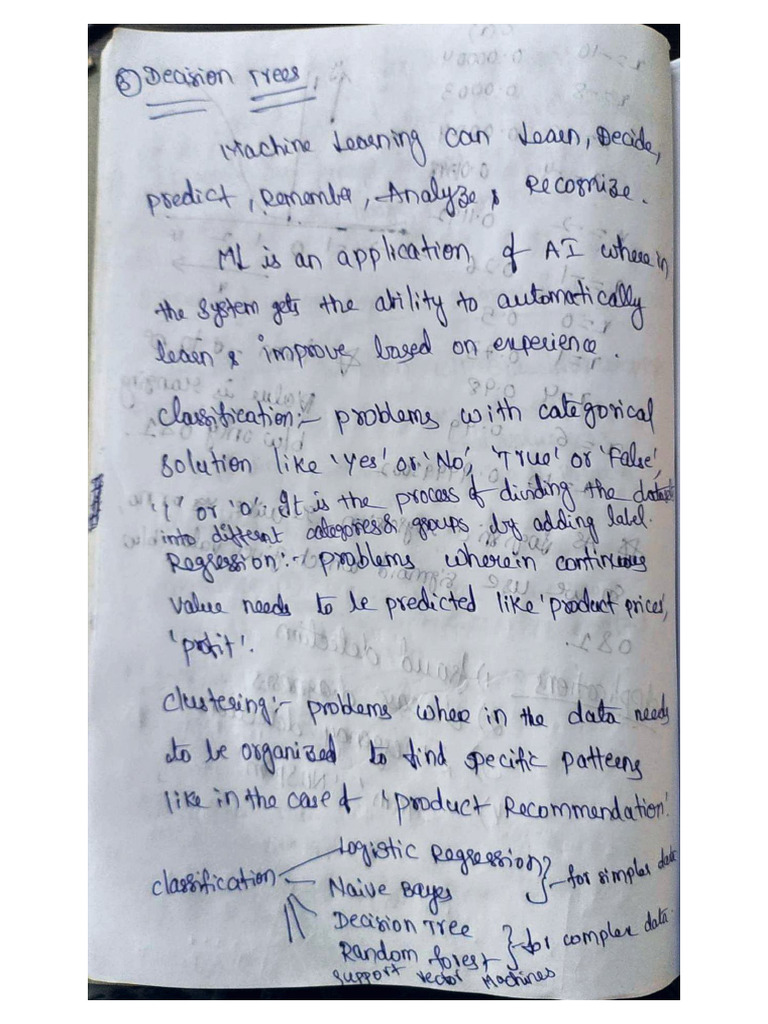 ⑧ Decision Trees
Machine Learning can Learn, Decide,
predict, Remember, Analyze & Recognize.
ML is an application of AI where in
the system gets the ability to automatically
learn & improve based on experience.
classification:- problems with categorical
solution like 'Yes' or 'No', 'True' or 'False',
'1' or '0'. It is the process of dividing the datasets
into different categories & groups by adding label.
Regression:- problems wherein continuous
value needs to be predicted like 'product prices',
'profit'.
clustering:- problems where in the data needs
to be organized to find specific patterns
like in the case of 'product Recommendation'.
Logistic Regression
classification Naive Bayes } for simpler data
Decision Tree
Random forest } for complex data.
support vector Machines